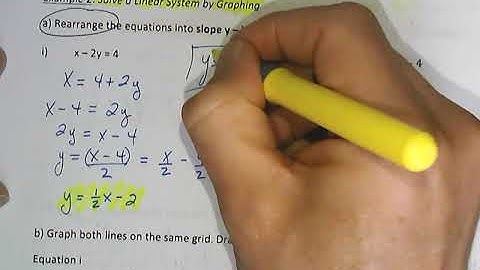 Example 2: Solve a Linear System by Graphing
a) Rearrange the equations into slope y –
i) x – 2y = 4
x = 4 + 2y
x - 4 = 2y
2y = x - 4
y = (x - 4)/2 = x/2 -
y = 1/2 x - 2
y
4
b) Graph both lines on the same grid.
Equation i